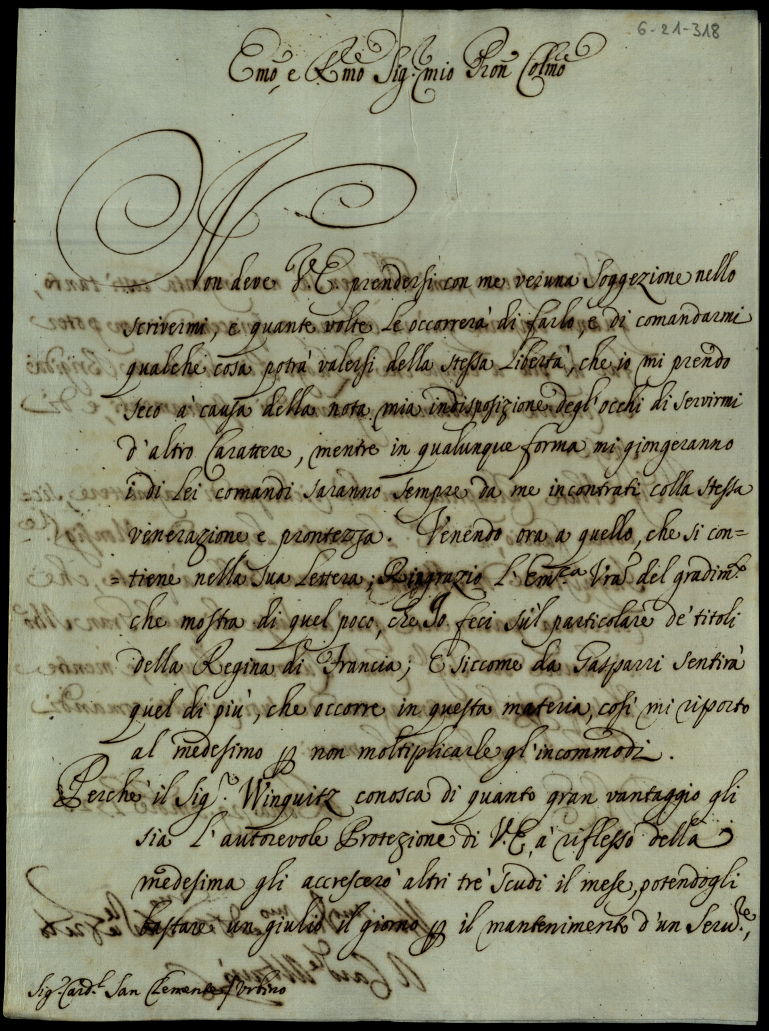 6-21-318
Emo, e Rmo Sig.r mio Pron Colmo
Non deve V.E prendersi con me veruna Soggezione nello
scrivermi, e quante volte le occorrerà di farlo, e di comandarmi
qualche cosa potrà valersi della stessa libertà, che io mi prendo
seco à causa della nota mia indisposizione degl'occhi di servirmi
d'altro Carattere, mentre in qualunque forma mi giongeranno
i di Lei comandi saranno sempre da me incontrati colla stessa
venerazione e prontezza. Venendo ora a quello, che si con=
=tiene nella sua Lettera; Ringrazio l'Em.za Vra del gradim.to
che mostra di quel poco, che Io feci sul particolare de' titoli
della Regina di Francia; E siccome da Gasparri sentirà
quel di più, che occorre in questa materia, così mi riporto
al medesimo p non moltiplicarle gl'incommodi.
Perche il Sig.r Winguitz conosca di quanto gran vantaggio gli
sia l'autorevole Protezione di V.E, à riflesso della
medesima gli accrescerò altri tre Scudi il mese, potendogli
bastare un giulio il giorno p il mantenimento d'un Serv.re,
Sig.r Card.l San Clemente Urbino